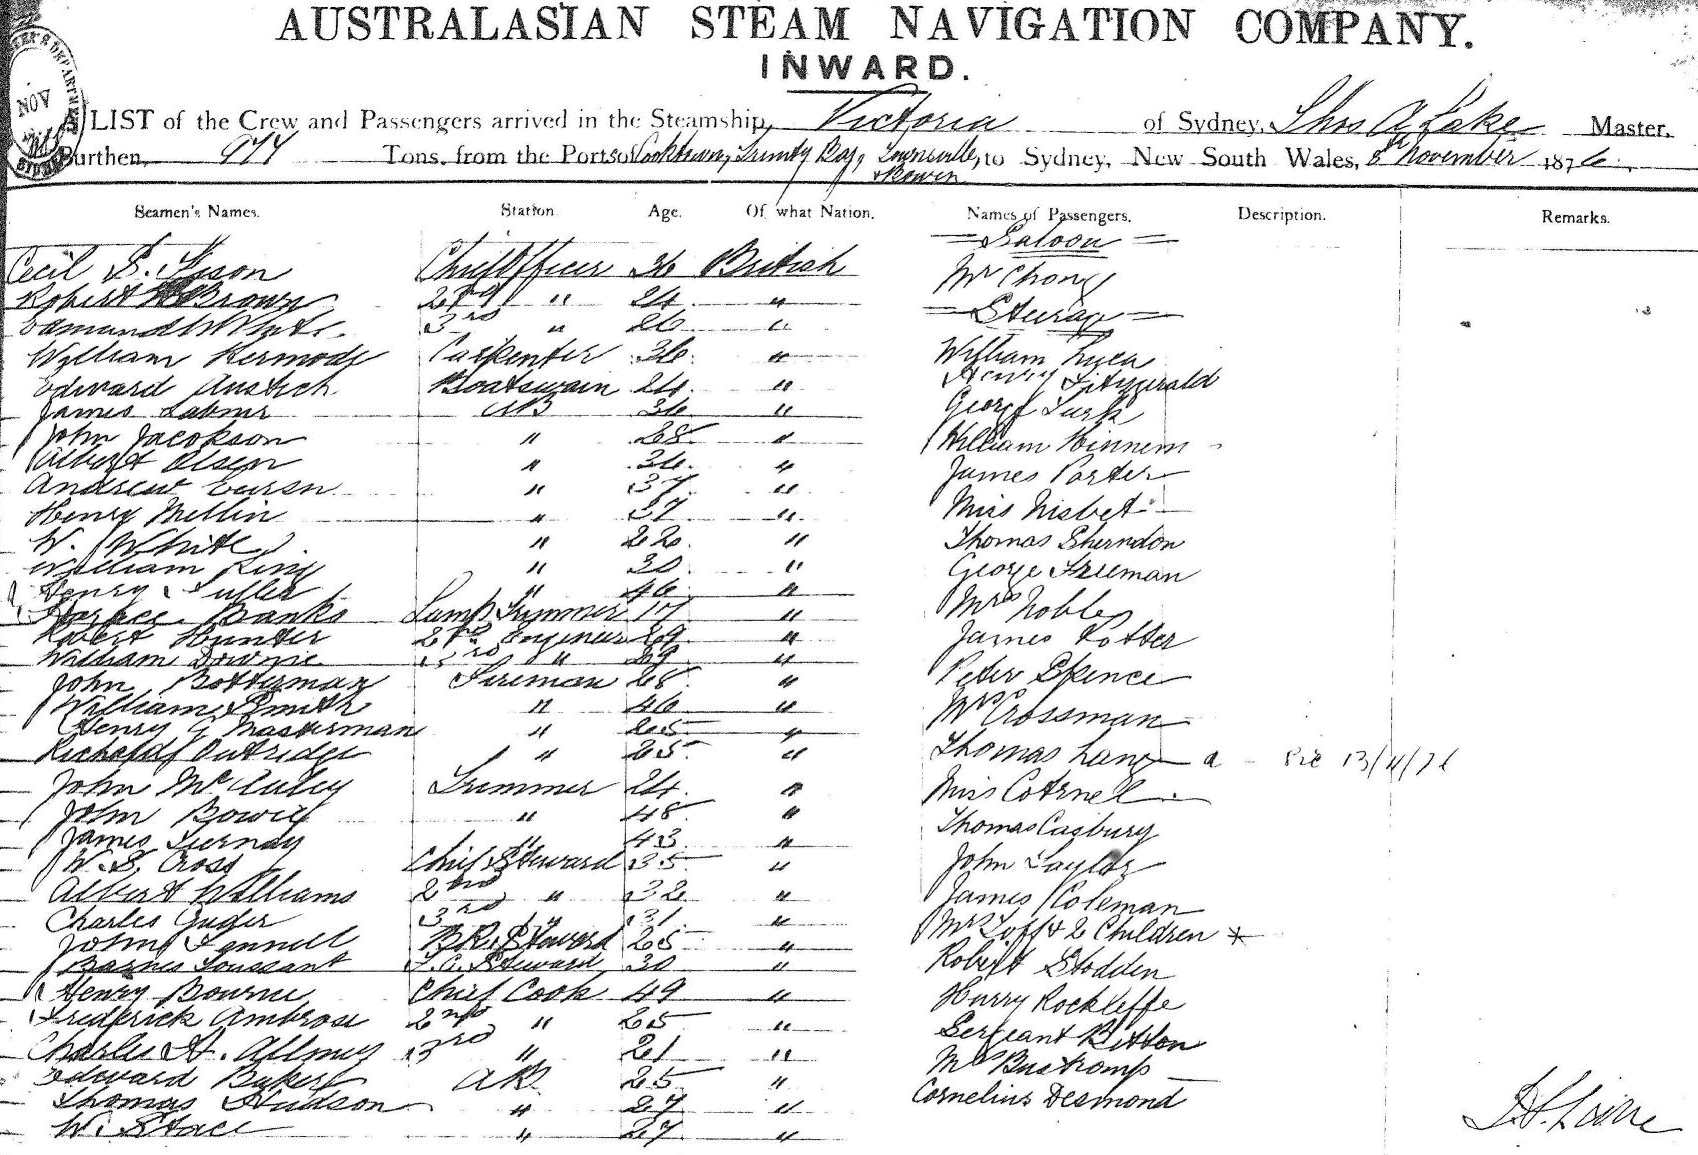 AUSTRALASIAN STEAM NAVIGATION COMPANY.
INWARD.
LIST of the Crew and Passengers arrived in the Steamship, Victoria of Sydney, Thos A Lake Master,
Burthen, 977 Tons, from the Ports of Cooktown, Trinity Bay, Townsville, to Sydney, New South Wales, 8th November 1876.
Bowen
NOV
Seamen's Names. Station Age. Of what Nation. Names of Passengers. Description. Remarks.
Saloon
Cecil S. Chief Officer 36 British Mr Chong
Robert Brown 2nd " 24 " Steerage
3rd " 26 "
William Kermode Carpenter 36 " William
Edward Boatswain 24 " Henry Fitzgerald
James AB 36 " George Turk
John Jacokson " 28 " William Hinnem
Albert Olsen " 36 " James Porter
Andrew " 37 " Miss Nisbet
Henry Mellin " 37 " Thomas Sherndon
W. White " 22 " George Freeman
William King " 30 " Mrs Noble
Henry " 46 " James Potter
Horace Banks Lamp Trimmer 17 " Peter Spence
Robert Hunter 2nd Engineer 29 " Crossman
William Downie 3rd " 29 " Thomas Lang a
John Botterman Fireman 28 " Miss Cotrnel
William Smith " 46 " Thomas Casbury
Henry G Masterman " 25 " John Taylor
Outridge " 25 " James Coleman
John McAuley Trimmer 24 " 2 Children *
John Bowie " 48 " Robert Stodden
James Turnay " 43 " Harry Rockleffe
W. S. Cross Chief Steward 35 " Sergeant Bitton
Albert Williams 2nd " 32 "
Charles Guder 3rd " 31 " Cornelius Desmond
John Fennell B.R. Steward 25 "
Barnes Toussant F.C. Steward 30 "
Henry Bourne Chief Cook 49 "
Frederick Ambrose 2nd " 25 "
Charles H. 3rd " 21 "
Edward Baker AB. 25 "
Thomas Hudson " 27 "
W. Stace " 27 "